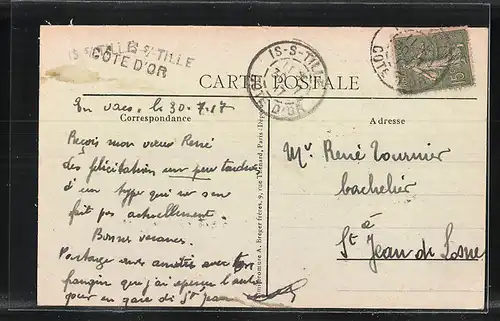 IS-S-TILLE
CÔTE D'OR
IS-S-TILLE
CÔTE D'OR
CARTE POSTALE
En vacs, le 30.7.17
Correspondance
Adresse
Reçois mon vieux René
des félicitations un peu tardives
d'un type qui ne s'en
fait pas actuellement.
Bonnes vacances.
Partage mes amitiés avec ton
frangin que j'ai aperçu l'autre
jour en gare de St Jean
Mr René Tournier
bachelier
à
St Jean de Losne
Berger frères, 9, rue Thénard, Paris